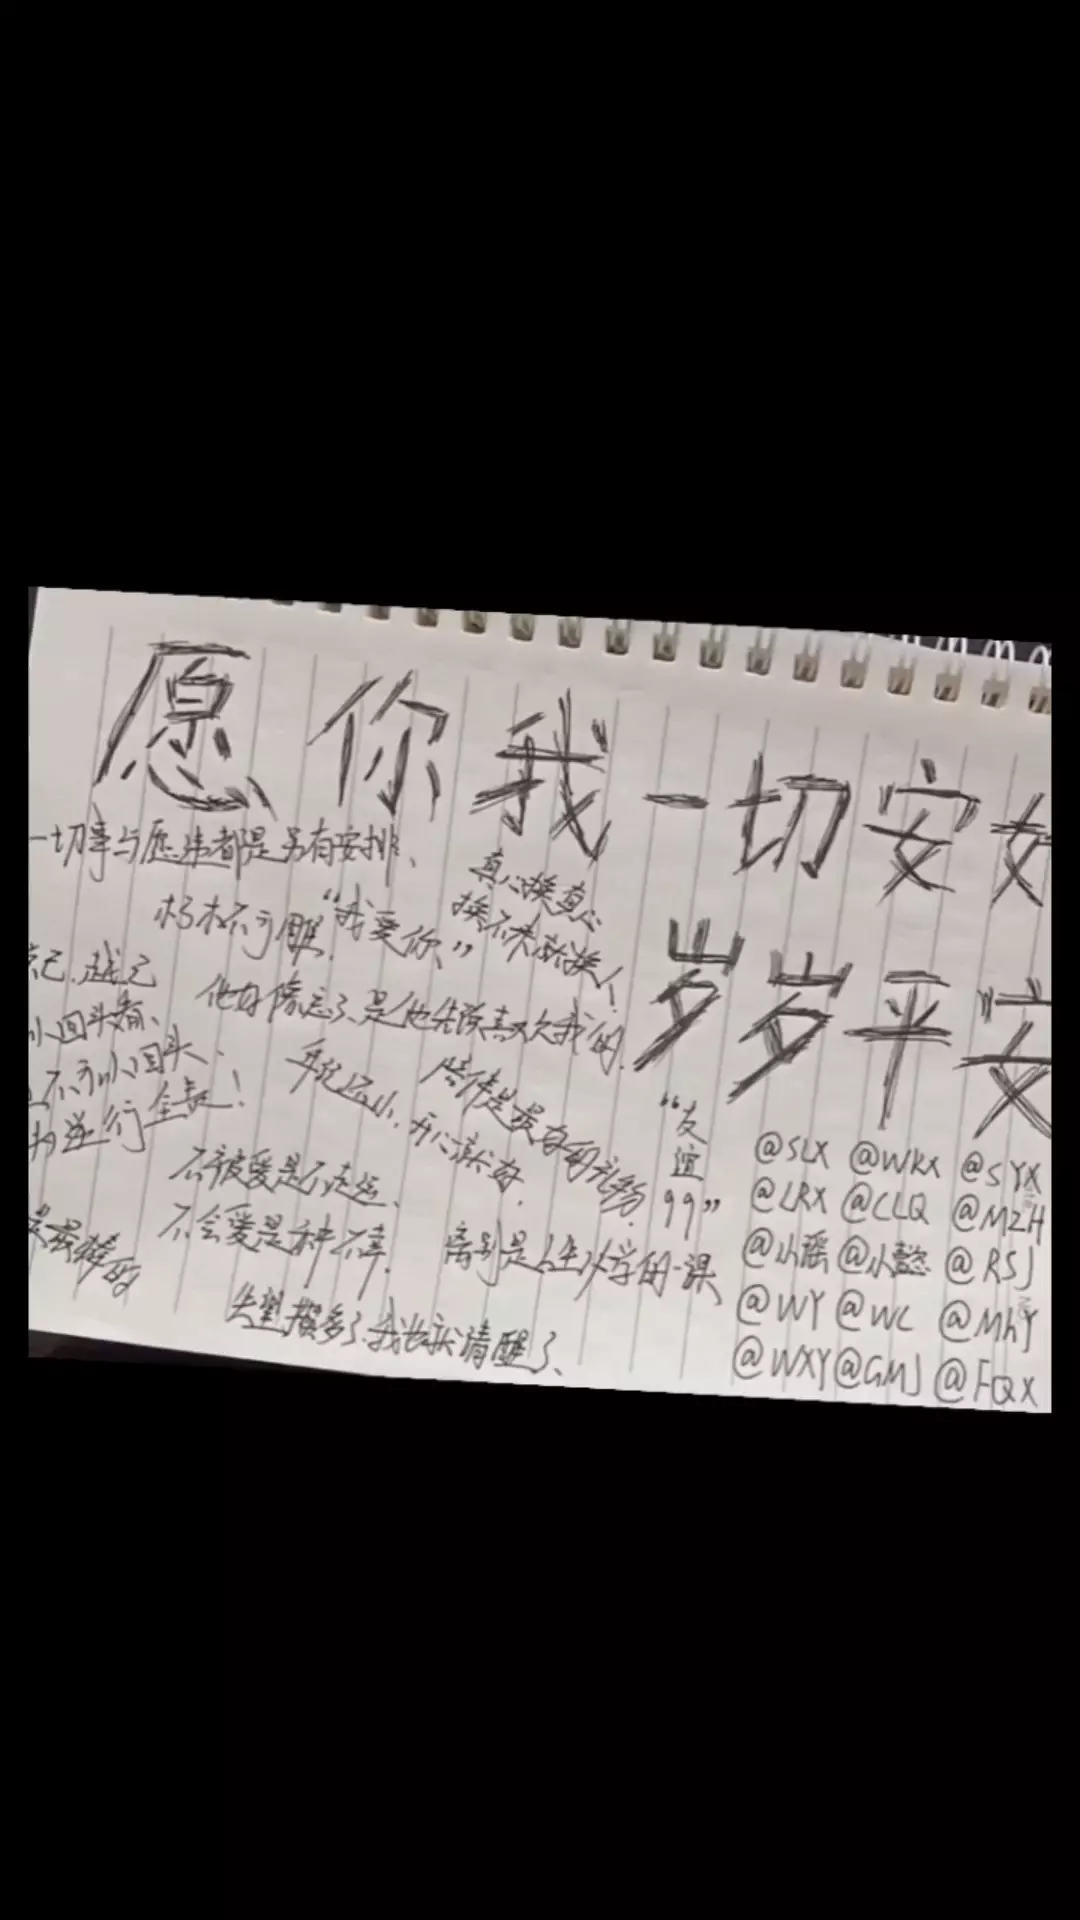 愿你我一切安好
岁岁平安
一切事与愿违都是另有安排、
朽木不可雕.
“我爱你、”
真心换真心
换不来就换人！
他好像忘了、是他先说喜欢我的.
年纪还小、开心就好.
陪伴是最好的礼物.
不被爱是不走运、
不会爱是种不幸.
离别是人生必学的一课
失望攒多了、我也就清醒了、
回头看、
不可以回头、
逆行
是最棒的
“友谊99”
@SLX @WKX @SYX
@LRX @CLQ @MZH
@小瑶 @小懿 @RSJ
@WY @WC @MhY
@WXY @GMJ @FQX